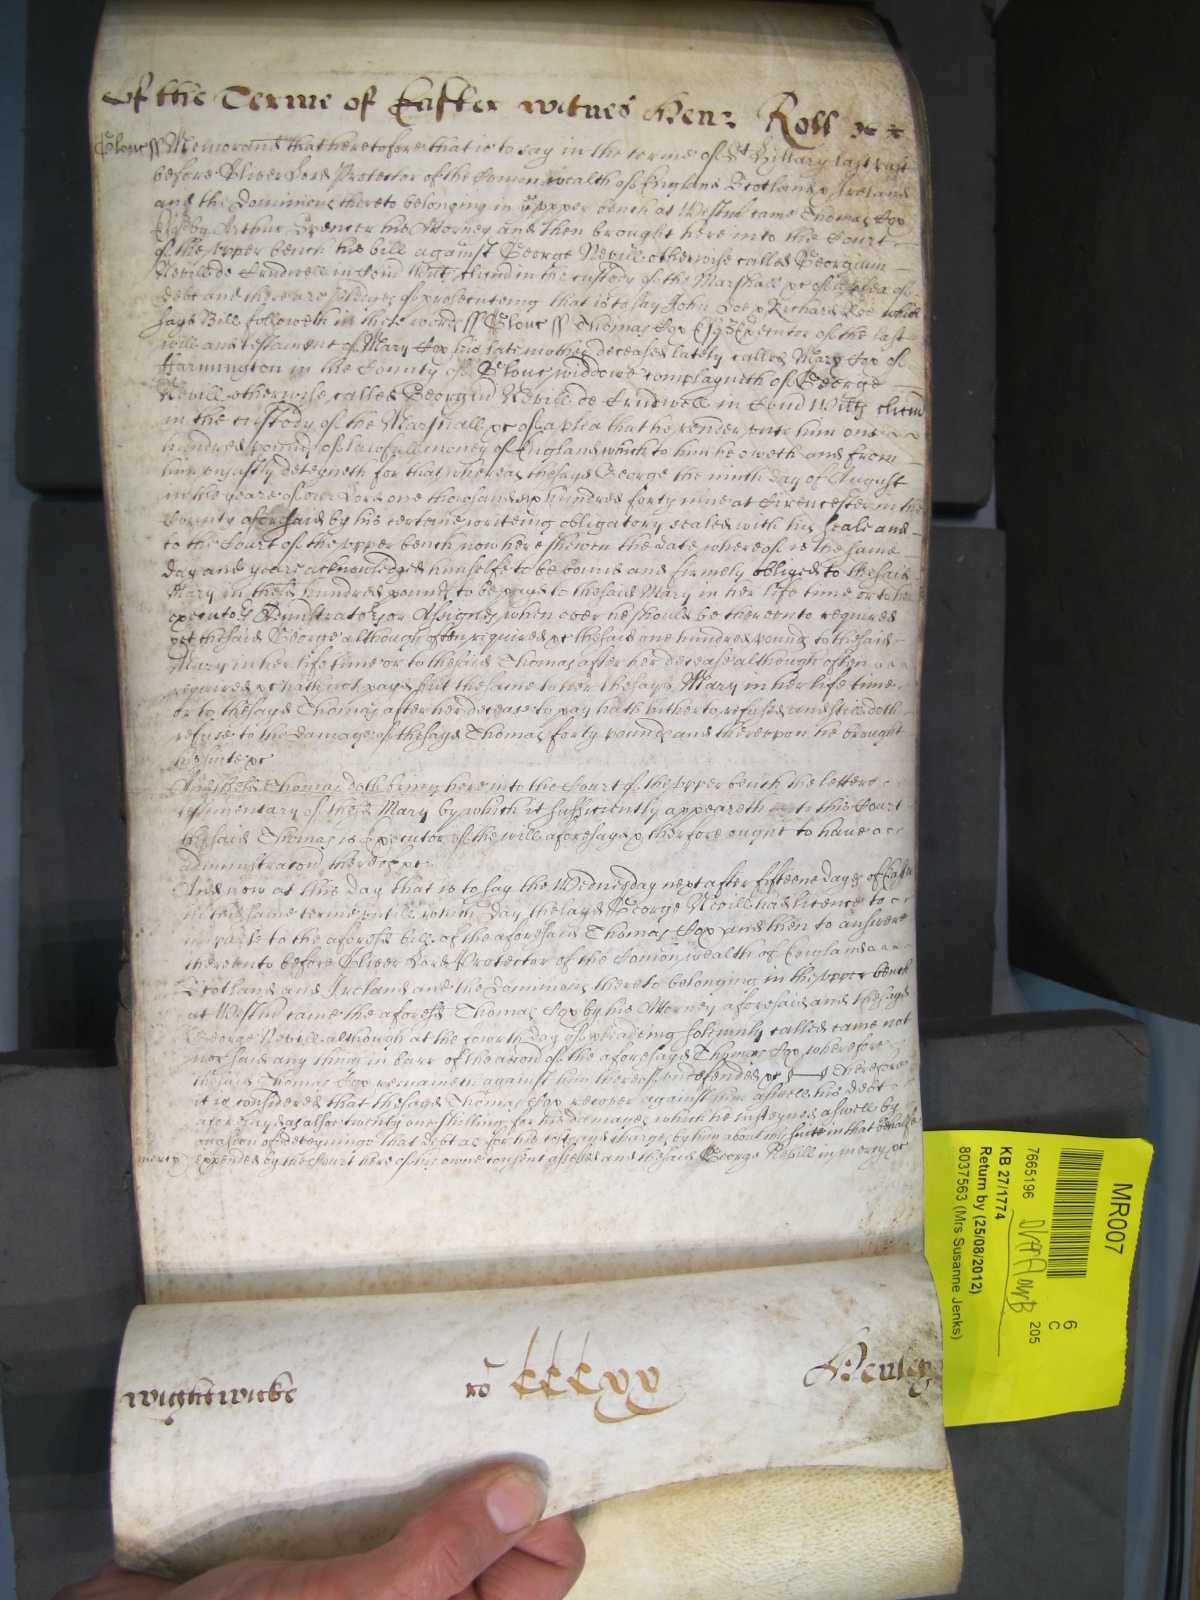 Of the Terme of Easter witnes Hen: Roll &c
Glouc ss Memorand that heretofore that is to say in the terme of St Hillary last past
before Oliver Lord Protector of the Comonwealth of England Scotland & Ireland
and the Dominions thereto belonging in ye upper bench at Westm came Thomas Fox
Esq by Arthur Spencer his Attorney and then brought here into the Court
of the upper bench his bill against George Nevill otherwise called Georgium
Nevill de Crudwell in Com Wilts in the custody of the Marshall &c of a plea of
debt and there are pledges of prosecuteing that is to say John Doe & Richard Roe which
sayd Bill followeth in these words ss Glouc ss Thomas Fox Esq Executor of the last
will and testament of Mary Fox his late mother deceased lately called Mary Fox of
Farmington in the County of Glouc widdowe complayneth of George
Nevill otherwise called Georgiu Nevill de Crudwell in Com Wilts
in the custody of the Marshall &c of a plea that he render unto him one
hundred pounds of lawfull money of England which to him he oweth and from
him unjustly deteyneth for that whereas the sayd George the ninth day of August
in the yeare of our Lord one thowsand six hundred forty nine at Cirencester in the
County aforesaid by his certeine writeing obligatory sealed with his seale and
to the Court of the upper bench now here shewen the date whereof is the same
day and yeare acknowledged himselfe to be bound and firmely obliged to the said
Mary in the sd hundred pounds to be payd to the said Mary in her life time or to her
executors Administrators or Assignes when ever he should be thereunto required
yet the said George although often required &c the said one hundred pound to the said
Mary in her life time or to the said Thomas after her decease although often
required &c hath not payd but the same to her the sayd Mary in her life time
or to the sayd Thomas after her decease to pay hath hitherto refused and still doth
refuse to the damage of the sayd Thomas forty pound and thereupon he brought
his suite &c
And the sd Thomas doth bring here into the Court of the upper bench the letters
testamentary of the sd Mary by which it sufficiently appeareth to this Court
the said Thomas is Executor of the will aforesayd & therefore ought to have
administracon thereof &c
And now at this day that is to say the Wednesday next after fifteene dayes of Easter
in this same terme untill which day the sayd George Nevill had licence to
imparle to the aforesd bill of the aforesaid Thomas Fox and then to answere
thereunto before Oliver Lord Protector of the Comonwealth of England
Scotland and Ireland and the Dominions thereto belonging in the upper bench
at Westm came the aforesd Thomas Fox by his Attorney aforesaid and the sayd
George Nevill although at the fourth day of pleadeing solemnly called came not
nor said any thing in barr of the accon of the aforesayd Thomas Fox wherefore
the said Thomas Fox remaineth against him thereof undefended &c Therefore
it is considered that the sayd Thomas Fox recover against him aswell his debt
aforesayd as alsoe twenty one shilling for his damages which he susteyned aswell by
occasion of deteyninge that debt as for his cost and charges by him about his suite in that behalfe
mercy expended by the Court here of his owne consent assessed and the said George Nevill in mercy &c
wightwicke ro CCCxx Henley
MR007
6
C
205
7665196
KB 27/1774
Return by (25/08/2012)
8037563 (Mrs Susanne Jenks)